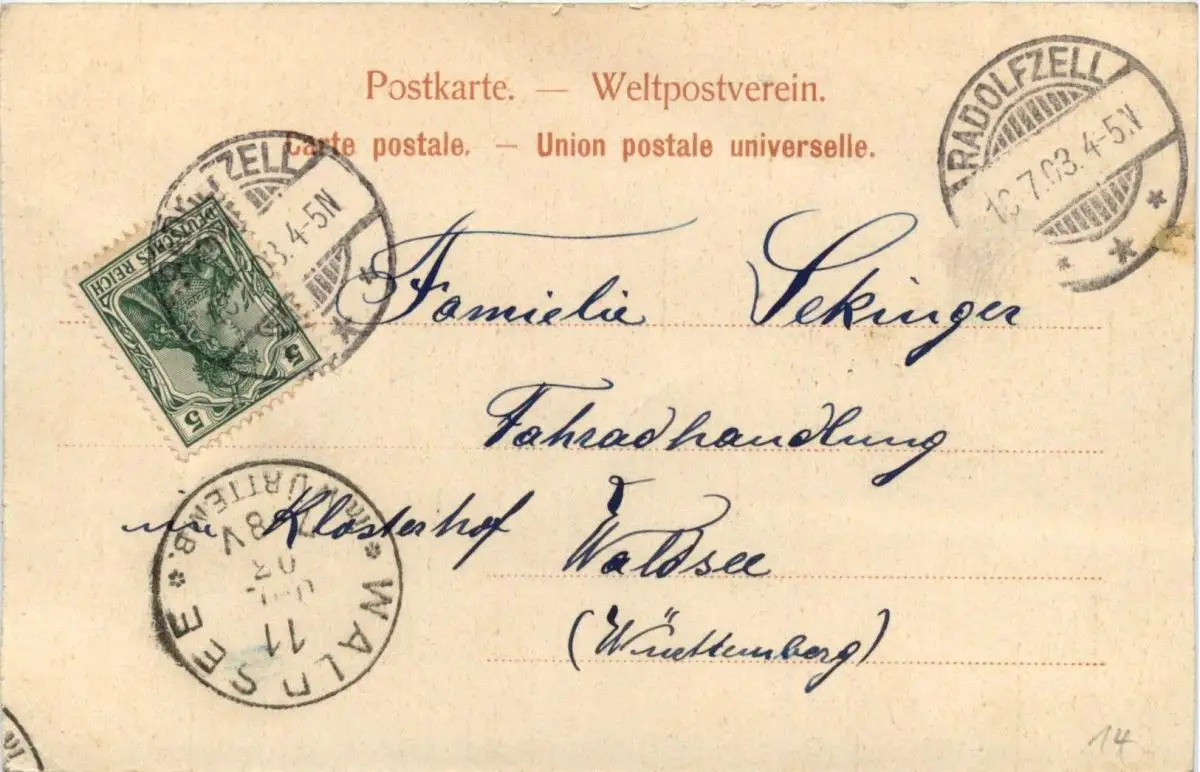 Postkarte. — Weltpostverein.
Carte postale. — Union postale universelle.
RADOLFZELL
10.7.03.4-5N
ZELL
03.4-5N
DEUTSCHES REICH
5
5
Familie Sekinger
Fahradhandlung
im Klosterhof
Waldsee
(Württemberg)
WÜRTTEMB.
8V
03
JUL
11
WALDSEE
14